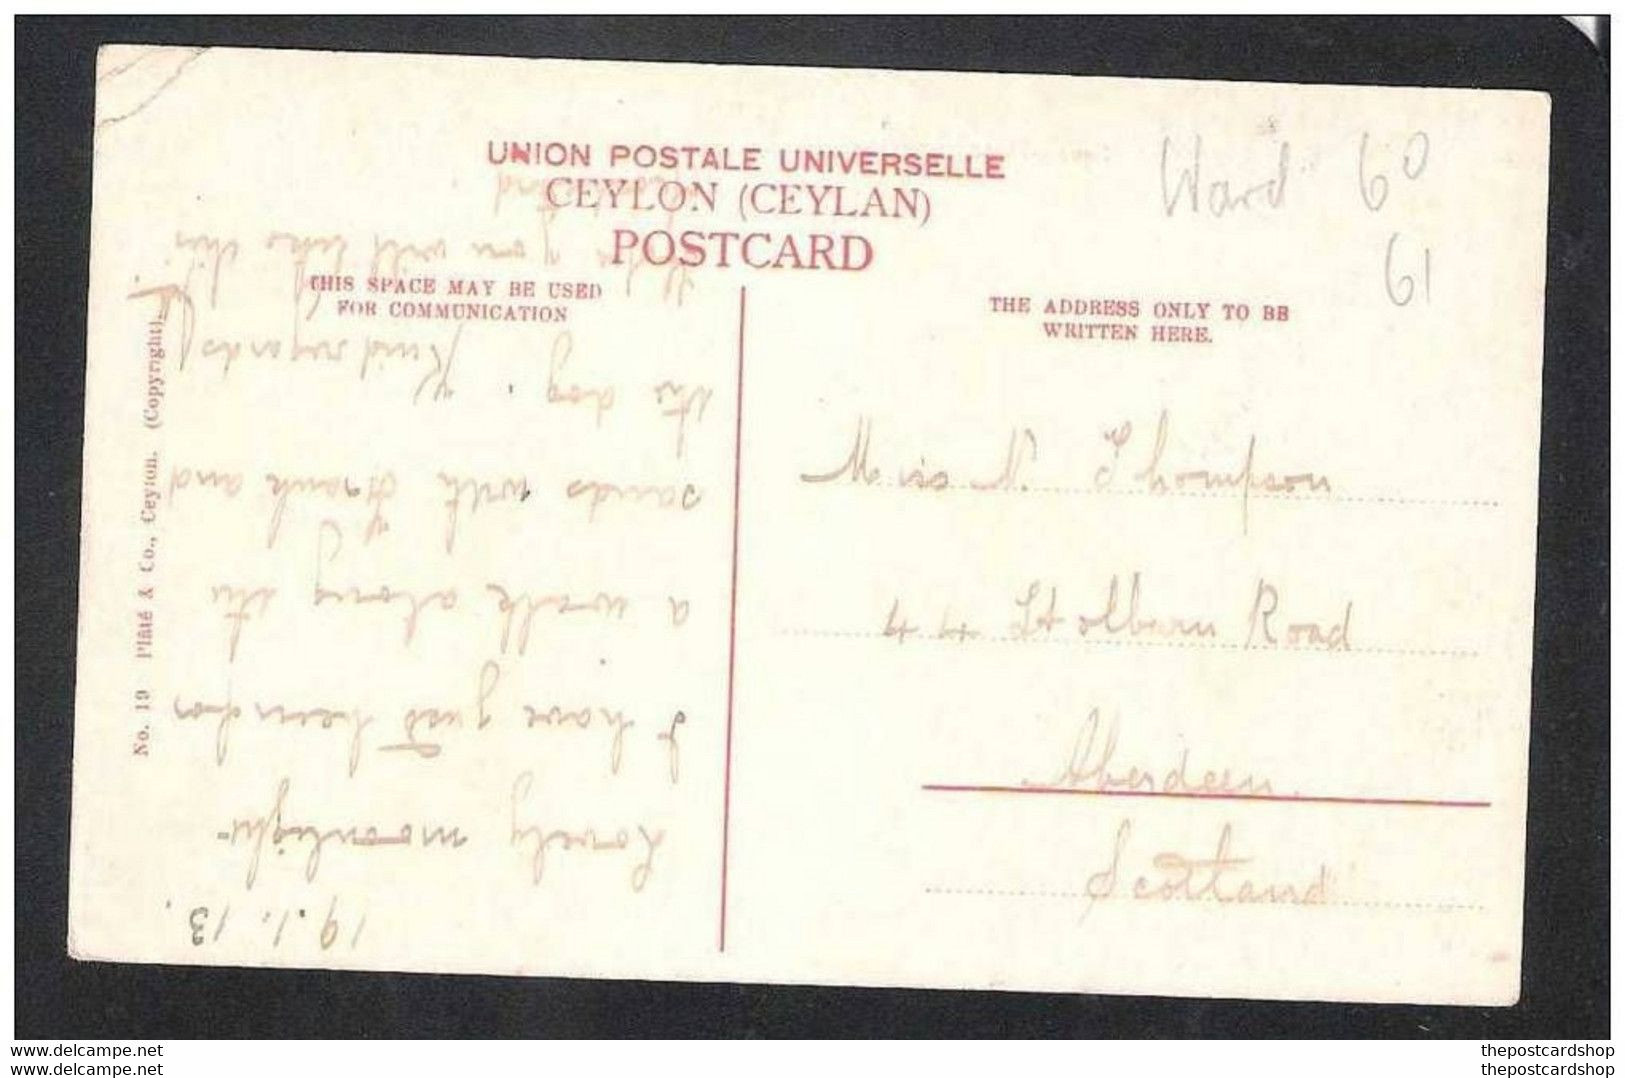 UNION POSTALE UNIVERSELLE
CEYLON (CEYLAN)
POSTCARD
Ward 60
61
THIS SPACE MAY BE USED
FOR COMMUNICATION
THE ADDRESS ONLY TO BE
WRITTEN HERE.
Miss N. Thompson
44 Holburn Road
Aberdeen.
Scotland
19.1.13.
Lovely moonlight-
I have just been for
a walk along the
sands with Frank and
the dog. Kind regards
you will like this
No. 19 Plâté & Co., Ceylon. (Copyright).
thepostcardshop
thepostcardshop
www.delcampe.net
www.delcampe.net